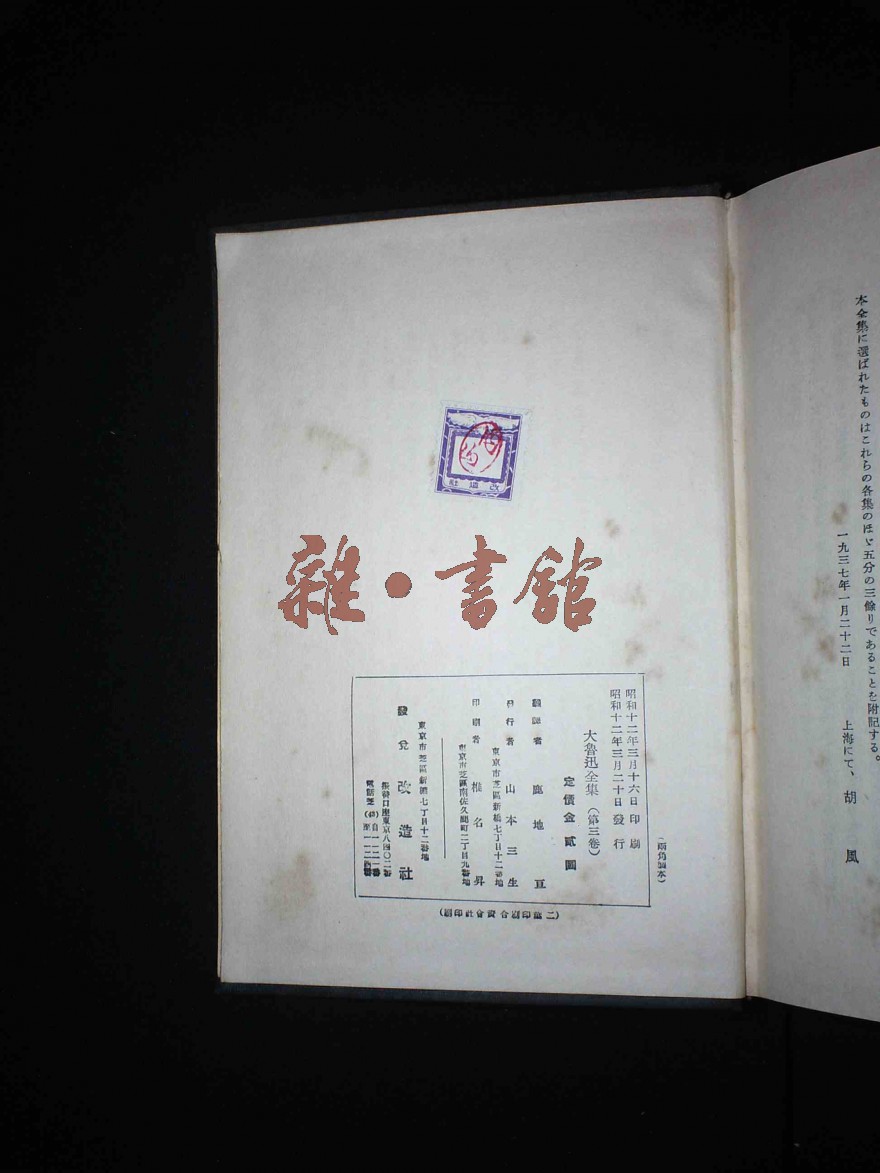 本全集に選ばれたものはこれらの各集のほゞ五分の三餘りであることを附記する。
一九三七年一月二十二日 上海にて、胡風
改造社
雜・書舘
昭和十二年三月十六日印刷
昭和十二年三月二十日發行
大魯迅全集（第三卷）
定價金貳圓
飜譯者 鹿地亘
發行者 山本三生
東京市芝區新橋七丁目十二番地
印刷者 椎名昇
東京市芝區南佐久間町二丁目九番地
東京市芝區新橋七丁目十二番地
發兌 改造社
振替口座東京八四〇二番